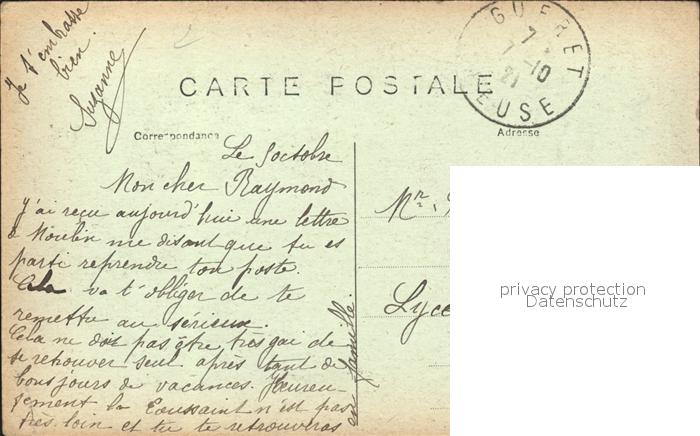 Je t'embrasse
bien.
Suzanne
GUERET
7
7 - 10
21
EUSE
CARTE POSTALE
Correspondance
Adresse
Le 5 octobre
Mon cher Raymond
J'ai reçu aujourd'hui une lettre
à Moulin me disant que tu es
parti reprendre ton poste.
Cela va t'obliger de te
remettre au sérieux.
Cela ne doit pas être très gai de
se retrouver seul après tant de
bons jours de vacances. Heureu-
sement la Toussaint n'est pas
très loin et tu te retrouveras
en famille.
Mr.
Lyce
privacy protection
Datenschutz